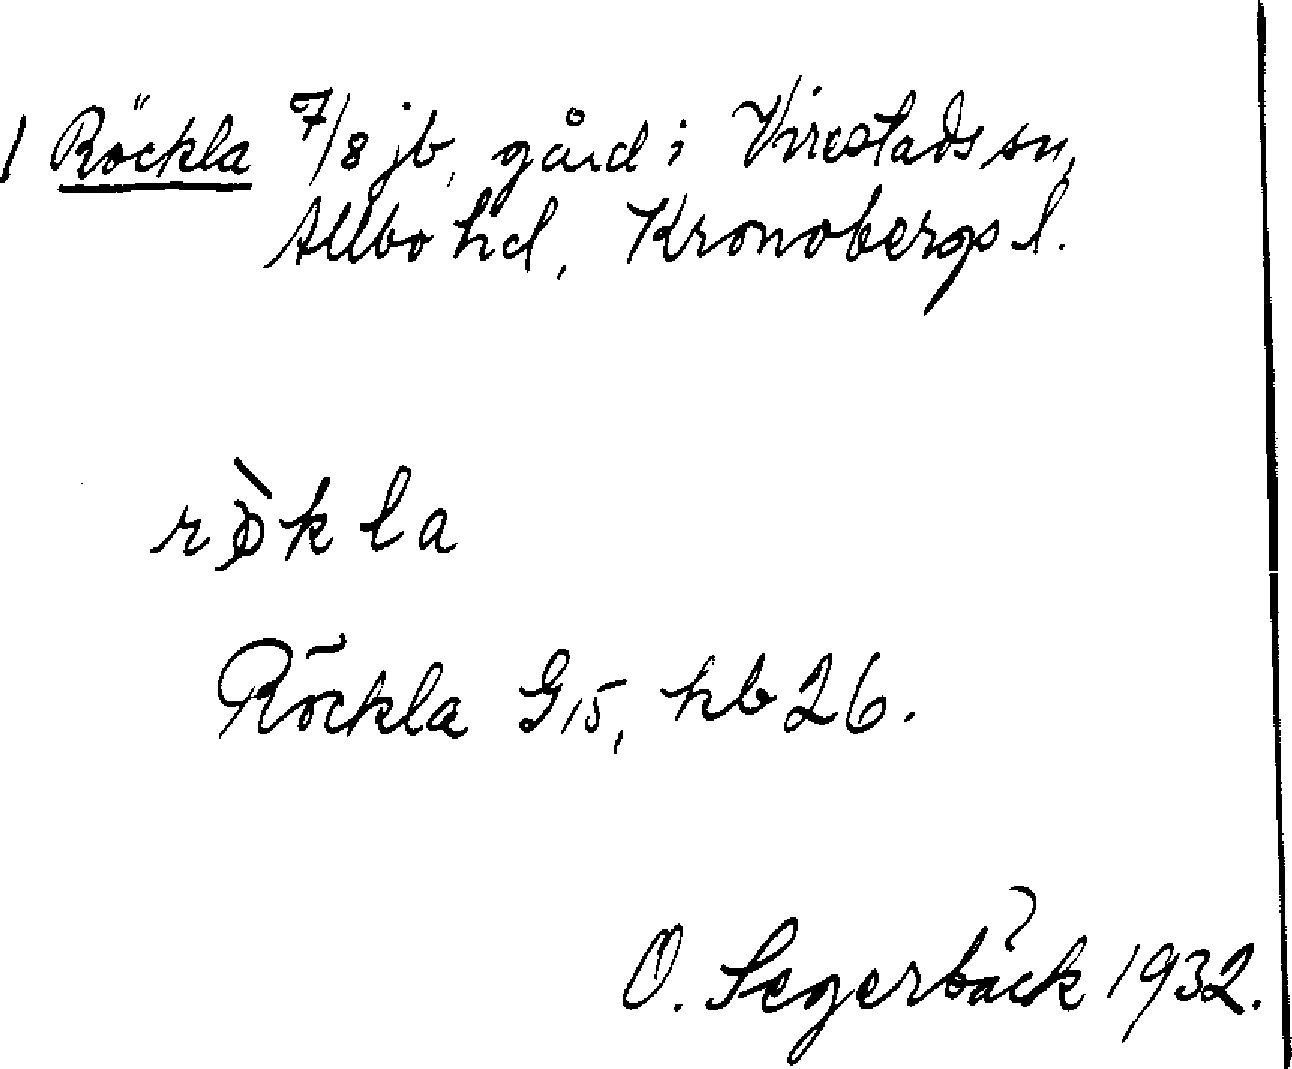 1 Röckla 7/8 jb, gård i Virestads sn,
Allbo hd, Kronobergs l.
rø̀kla
Röckla G15, hb 26.
O. Segerbäck 1932.